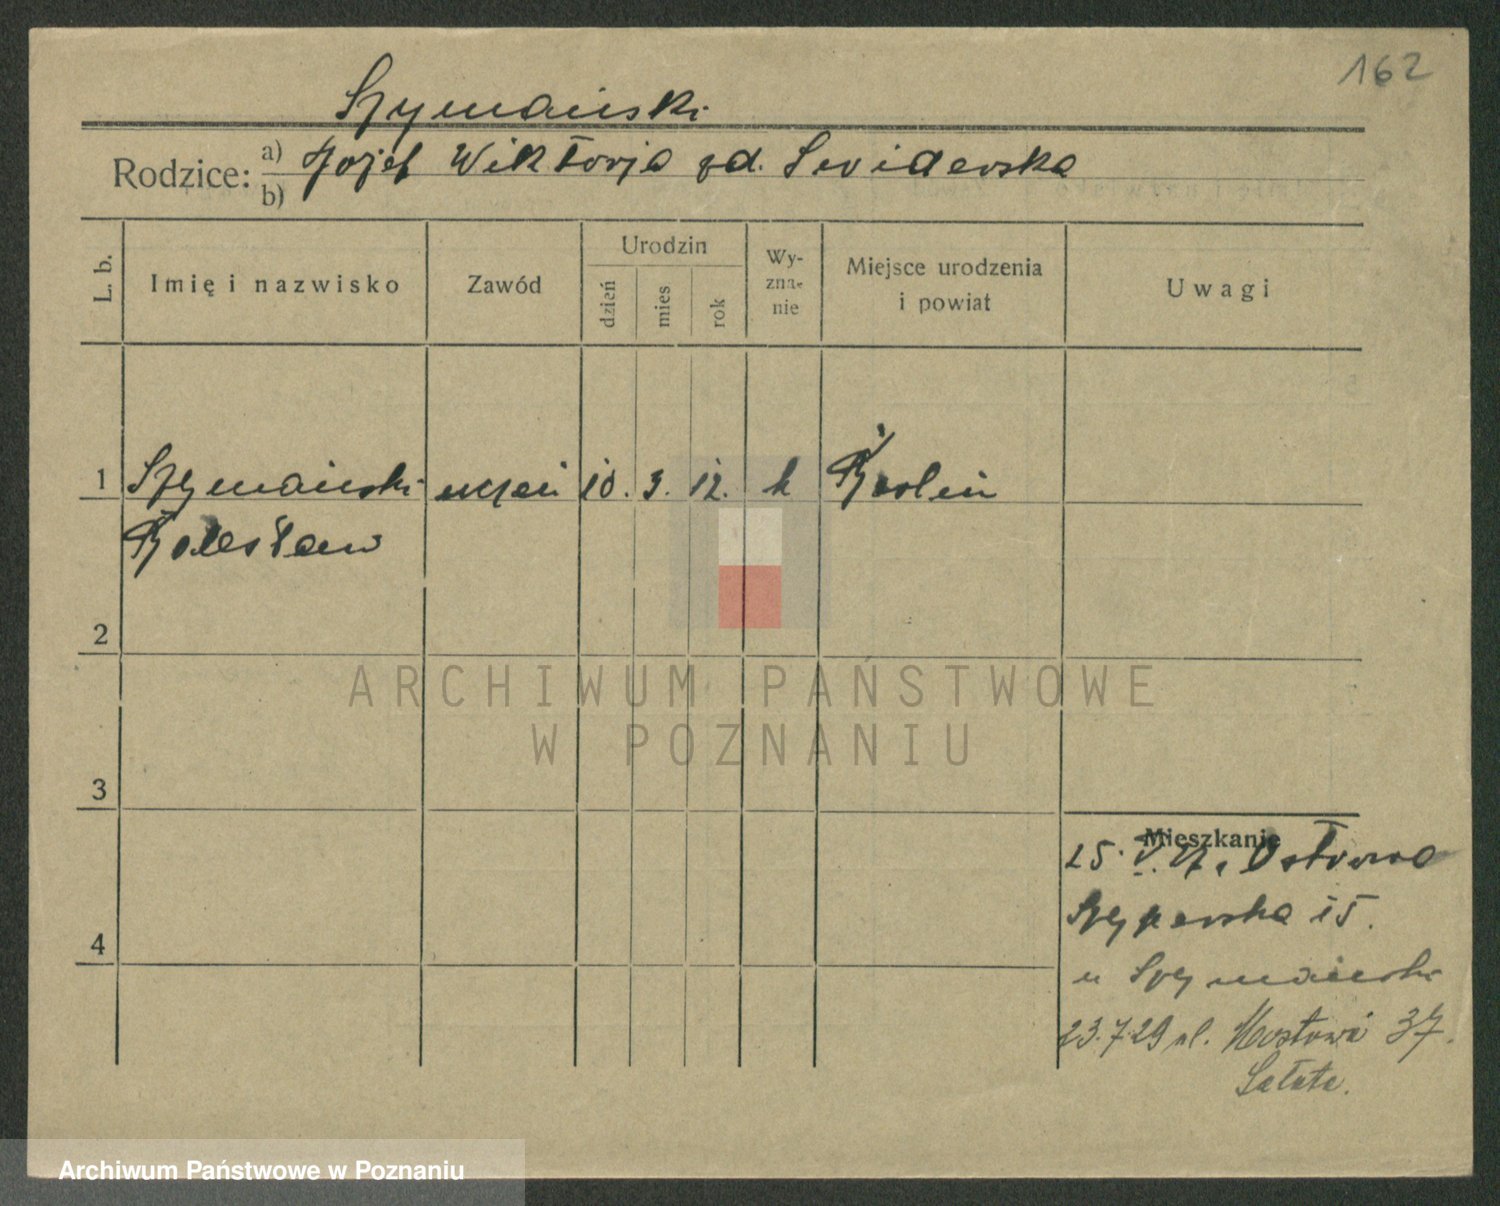 162
Szymański
Rodzice: a) Józef Wiktorja zd. Sviderska
b)
L. b.
Imię i nazwisko
Zawód
Urodzin
dzień
mies
rok
Wy-
zna-
nie
Miejsce urodzenia
i powiat
Uwagi
1 Szymański uczeń 10. 3. 12. k Berlin
Bolesław
2
3
4
Mieszkanie
25. V. 27. Ostrowo
Szyperska 15.
u Szymański
23.7.29 ul. Mostowa 37.
Sałata.
ARCHIWUM PAŃSTWOWE
W POZNANIU
Archiwum Państwowe w Poznaniu